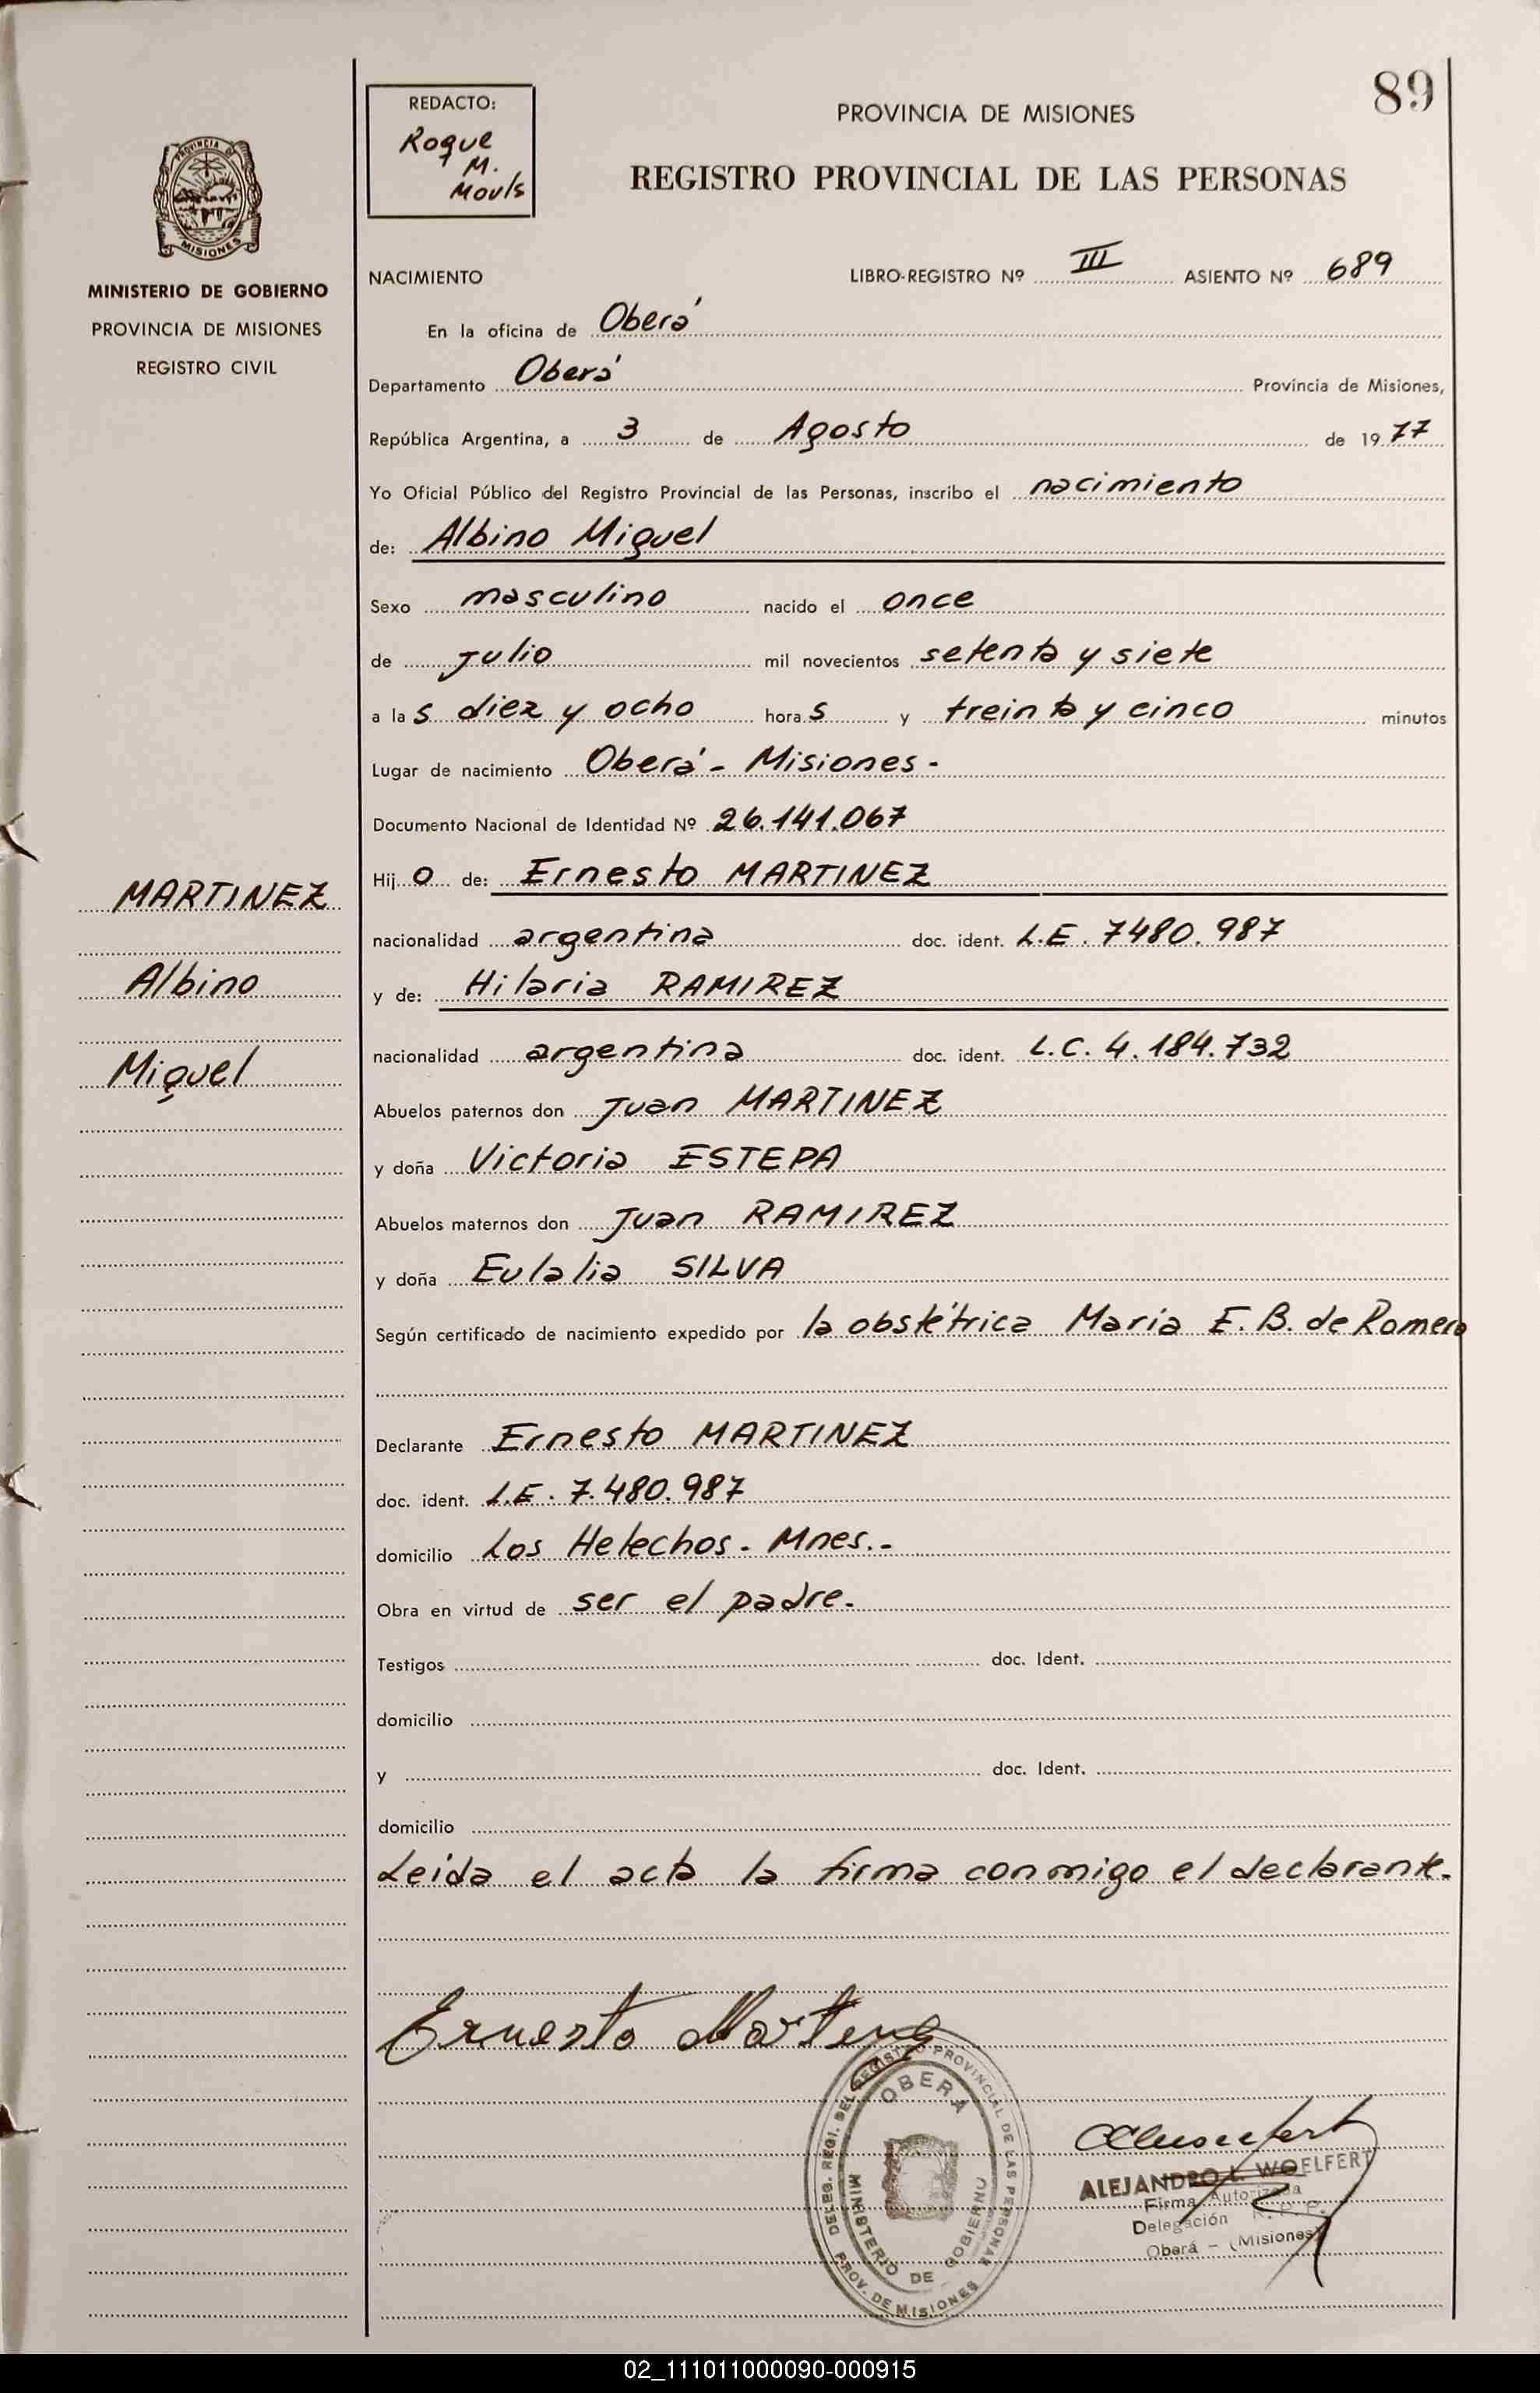 89
REDACTO:
Roque
M.
Mouls
PROVINCIA DE MISIONES
REGISTRO PROVINCIAL DE LAS PERSONAS
PROVINCIA D
MISIONES
MINISTERIO DE GOBIERNO
PROVINCIA DE MISIONES
REGISTRO CIVIL
NACIMIENTO LIBRO-REGISTRO Nº III ASIENTO Nº 689
En la oficina de Oberá
Departamento Oberá Provincia de Misiones,
República Argentina, a 3 de Agosto de 1977
Yo Oficial Público del Registro Provincial de las Personas, inscribo el nacimiento
de: Albino Miguel
Sexo masculino nacido el once
de julio mil novecientos setenta y siete
a las diez y ocho horas y treinta y cinco minutos
Lugar de nacimiento Oberá - Misiones -
Documento Nacional de Identidad Nº 26.141.067
Hijo de: Ernesto MARTINEZ
nacionalidad argentina doc. ident. L.E. 7480.987
y de: Hilaria RAMIREZ
nacionalidad argentina doc. ident. L.C. 4.184.732
Abuelos paternos don Juan MARTINEZ
y doña Victoria ESTEPA
Abuelos maternos don Juan RAMIREZ
y doña Eulalia SILVA
Según certificado de nacimiento expedido por la obstétrica Maria E. B. de Romero
Declarante Ernesto MARTINEZ
doc. ident. L.E. 7.480.987
domicilio Los Helechos - Mnes.-
Obra en virtud de ser el padre.
Testigos doc. Ident.
domicilio
y doc. Ident.
domicilio
Leida el acta la firma conmigo el declarante.
MARTINEZ
Albino
Miguel
Ernesto Martenz
DELEG. REGI. DEL REGISTRO PROVINCIAL DE LAS PERSONAS
OBERA
MINISTERIO DE GOBIERNO
PROV. DE MISIONES
ALEJANDRO L. WOELFERT
Firma Autorizada
Delegación R. P. P.
Oberá - (Misiones)
02_111011000090-000915